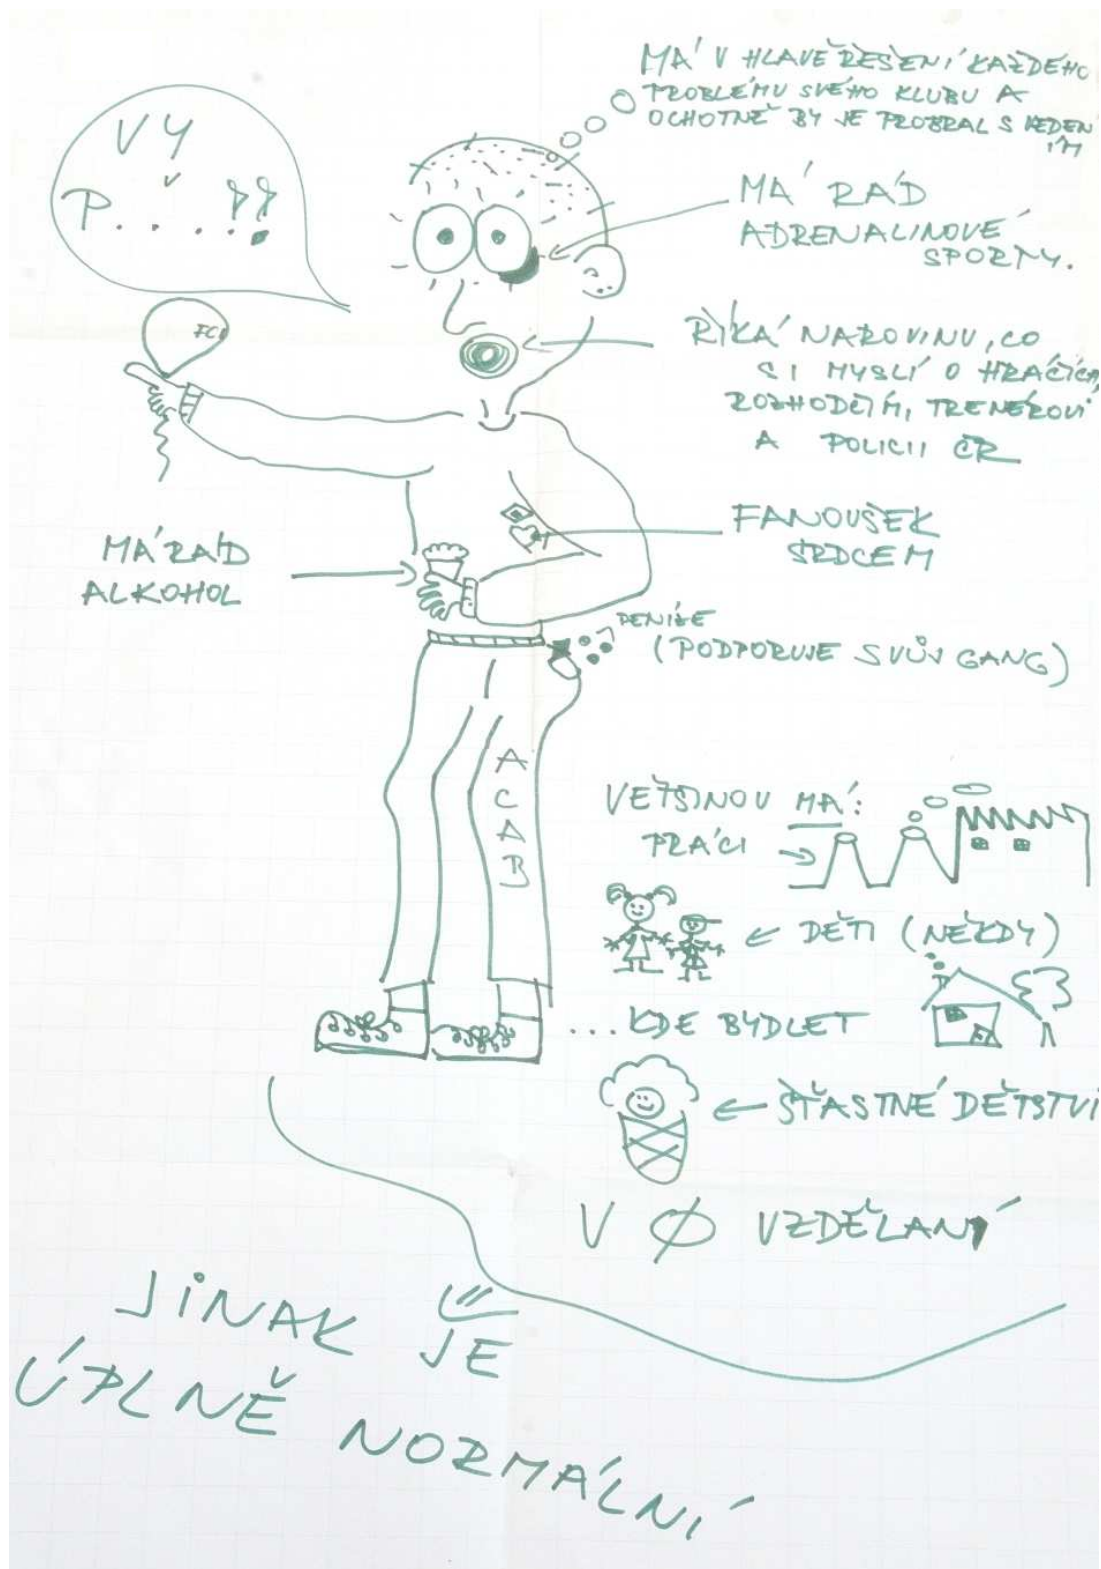 MÁ V HLAVĚ ŘEŠENÍ KAŽDÉHO
PROBLÉMU SVÉHO KLUBU A
OCHOTNĚ BY JE PROBRAL S VEDEN
ÍM
VY
P.....!!
MÁ RÁD
ADRENALINOVÉ
SPORTY.
FC
ŘÍKÁ NAROVINU, CO
SI MYSLÍ O HRÁČÍCH,
ROZHODČÍM, TRENÉROVI
A POLICII ČR
FANOUŠEK
SRDCEM
MÁ RÁD
ALKOHOL
PENÍZE
(PODPORUJE SVŮJ GANG)
A
C
A
B
VĚTŠINOU MÁ:
PRÁCI
DĚTI (NĚKDY)
...KDE BYDLET
ŠŤASTNÉ DĚTSTVÍ
V Ø VZDĚLANÍ
JINAK JE
ÚPLNĚ NORMÁLNÍ